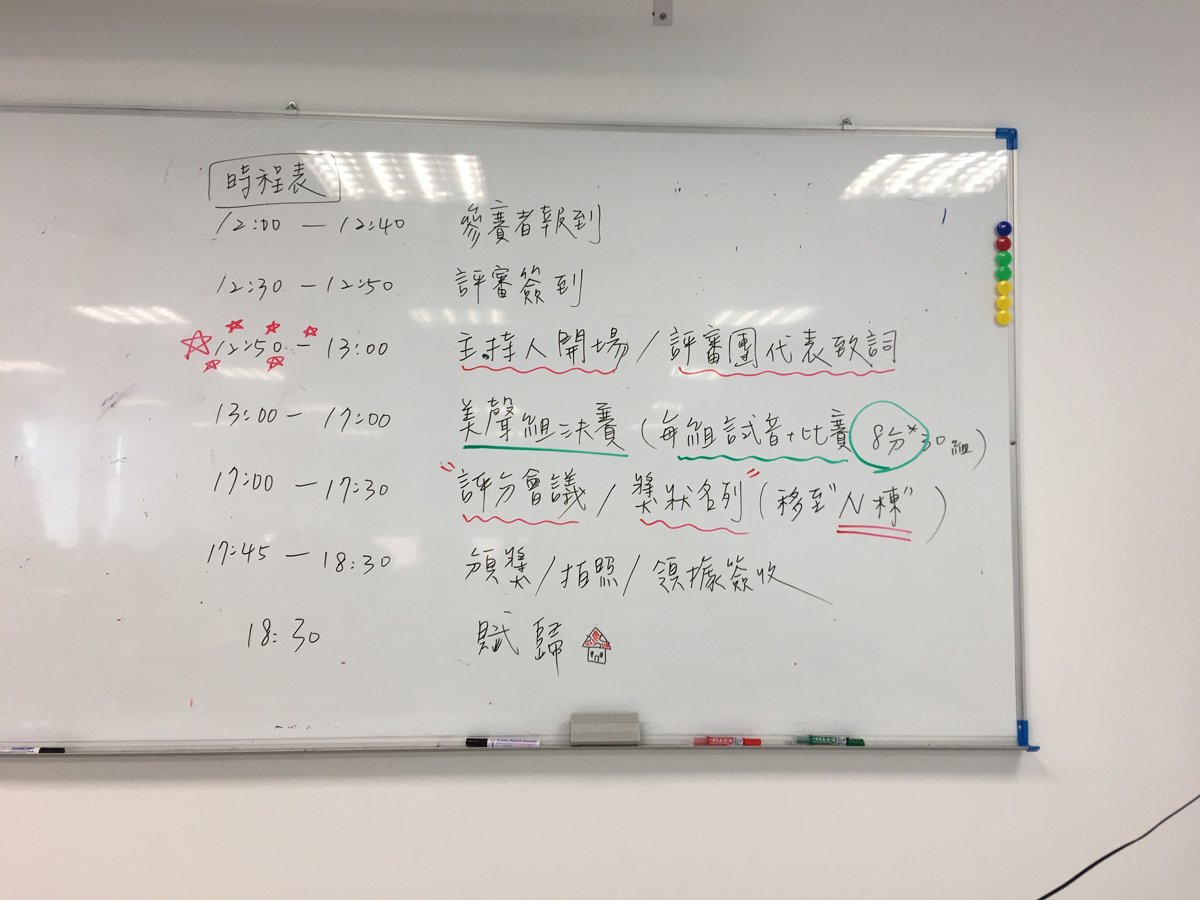 時程表
12:00 — 12:40 參賽者報到
12:30 — 12:50 評審簽到
12:50 — 13:00 主持人開場 / 評審團代表致詞
13:00 — 17:00 美聲組決賽 (每組試音+比賽 8分*30組)
17:00 — 17:30 "評分會議 / 獎狀名列" (移至"N棟")
17:45 — 18:30 頒獎/拍照/領據簽收
18:30 賦歸